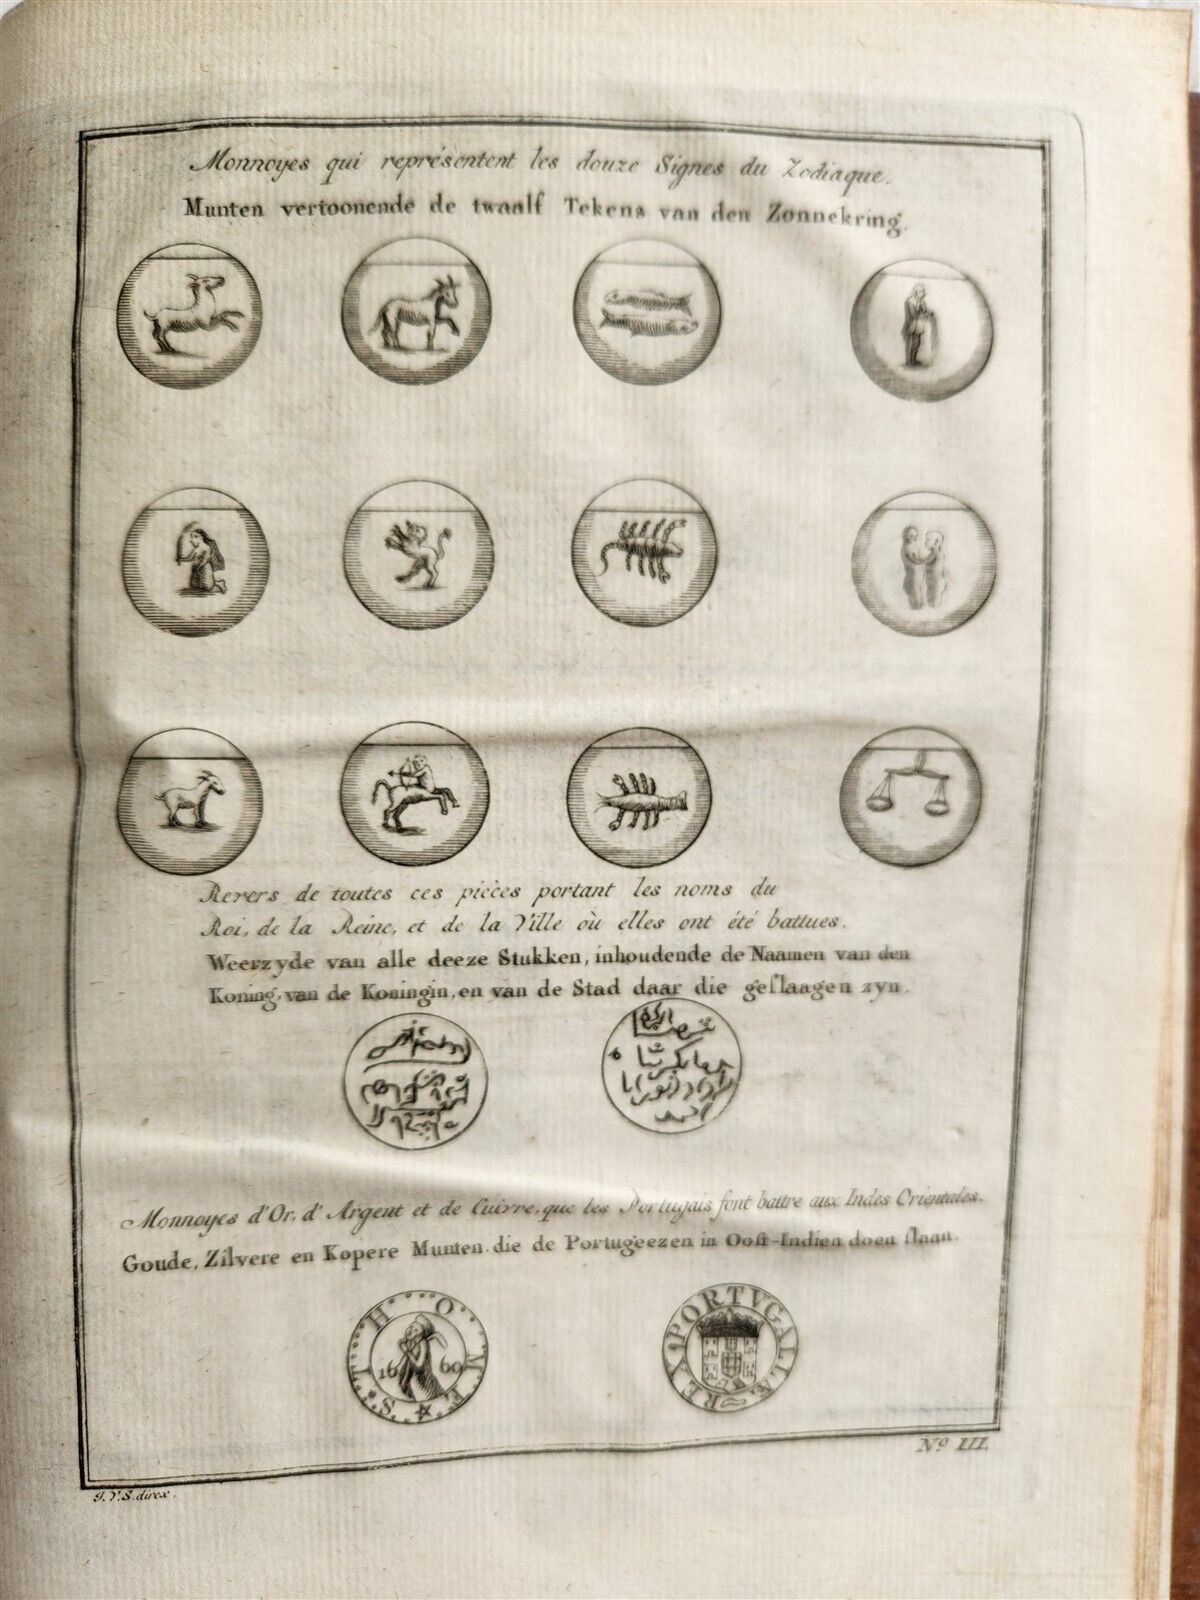 Monnoyes qui représentent les douze Signes du Zodiaque.
Munten vertoonende de twaalf Tekens van den Zonnekring.
Revers de toutes ces pièces portant les noms du
Roi, de la Reine, et de la Ville où elles ont été battues.
Weerzyde van alle deeze Stukken, inhoudende de Naamen van den
Koning, van de Koningin, en van de Stad daar die geslaagen zyn.
Monnoyes d'Or, d'Argent et de Cuivre, que les Portugais font battre aux Indes Orientales.
Goude, Zilvere en Kopere Munten, die de Portugeezen in Oost-Indien doen slaan.
S·T·H·O·M·E
1660
REX PORTVGALLÆ
Nº III.
J.V.S. direx.